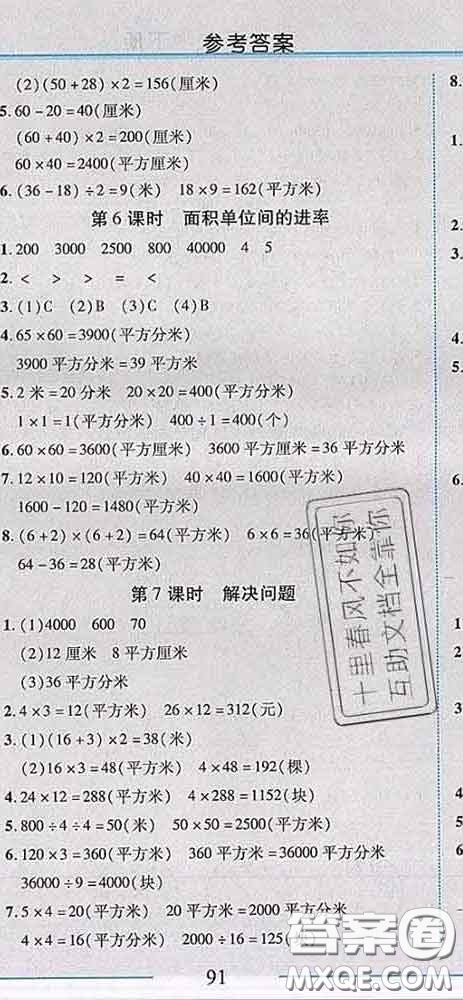 参考答案
(2)(50+28)×2=156(厘米)
5.60-20=40(厘米)
(60+40)×2=200(厘米)
60×40=2400(平方厘米)
6.(36-18)÷2=9(米) 18×9=162(平方米)
第6课时 面积单位间的进率
1.200 3000 2500 800 40000 4 5
2.< > > = <
3.(1)C (2)B (3)C (4)B
4.65×60=3900(平方分米)
3900平方分米=39平方米
5.2米=20分米 20×20=400(平方分米)
1×1=1(平方分米) 400÷1=400(个)
6.60×60=3600(平方厘米) 3600平方厘米=36平方分米
7.12×10=120(平方米) 40×40=1600(平方米)
1600-120=1480(平方米)
8.(6+2)×(6+2)=64(平方米) 6×6=36(平方米)
64-36=28(平方米)
第7课时 解决问题
1.(1)4000 600 70
(2)12厘米 8平方厘米
(3)36平方分米
2.4×3=12(平方米) 26×12=312(元)
3.(1)(16+3)×2=38(米)
(2)16×3=48(平方米) 4×48=192(棵)
4.24×12=288(平方米) 4×288=1152(块)
5.800÷4÷4=50(米) 50×50=2500(平方米)
6.120×3=360(平方米) 360平方米=36000平方分米
36000÷9=4000(块)
7.5×4=20(平方米) 20平方米=2000平方分米
4×4=16(平方分米) 2000÷16=125(块)
91
十里春风不如你
互助文档全靠你
答案圈
MXQE.COM
8.
1.
2.
3.
4.
5.
6.
1.
2.
3.
4.
5.
6.